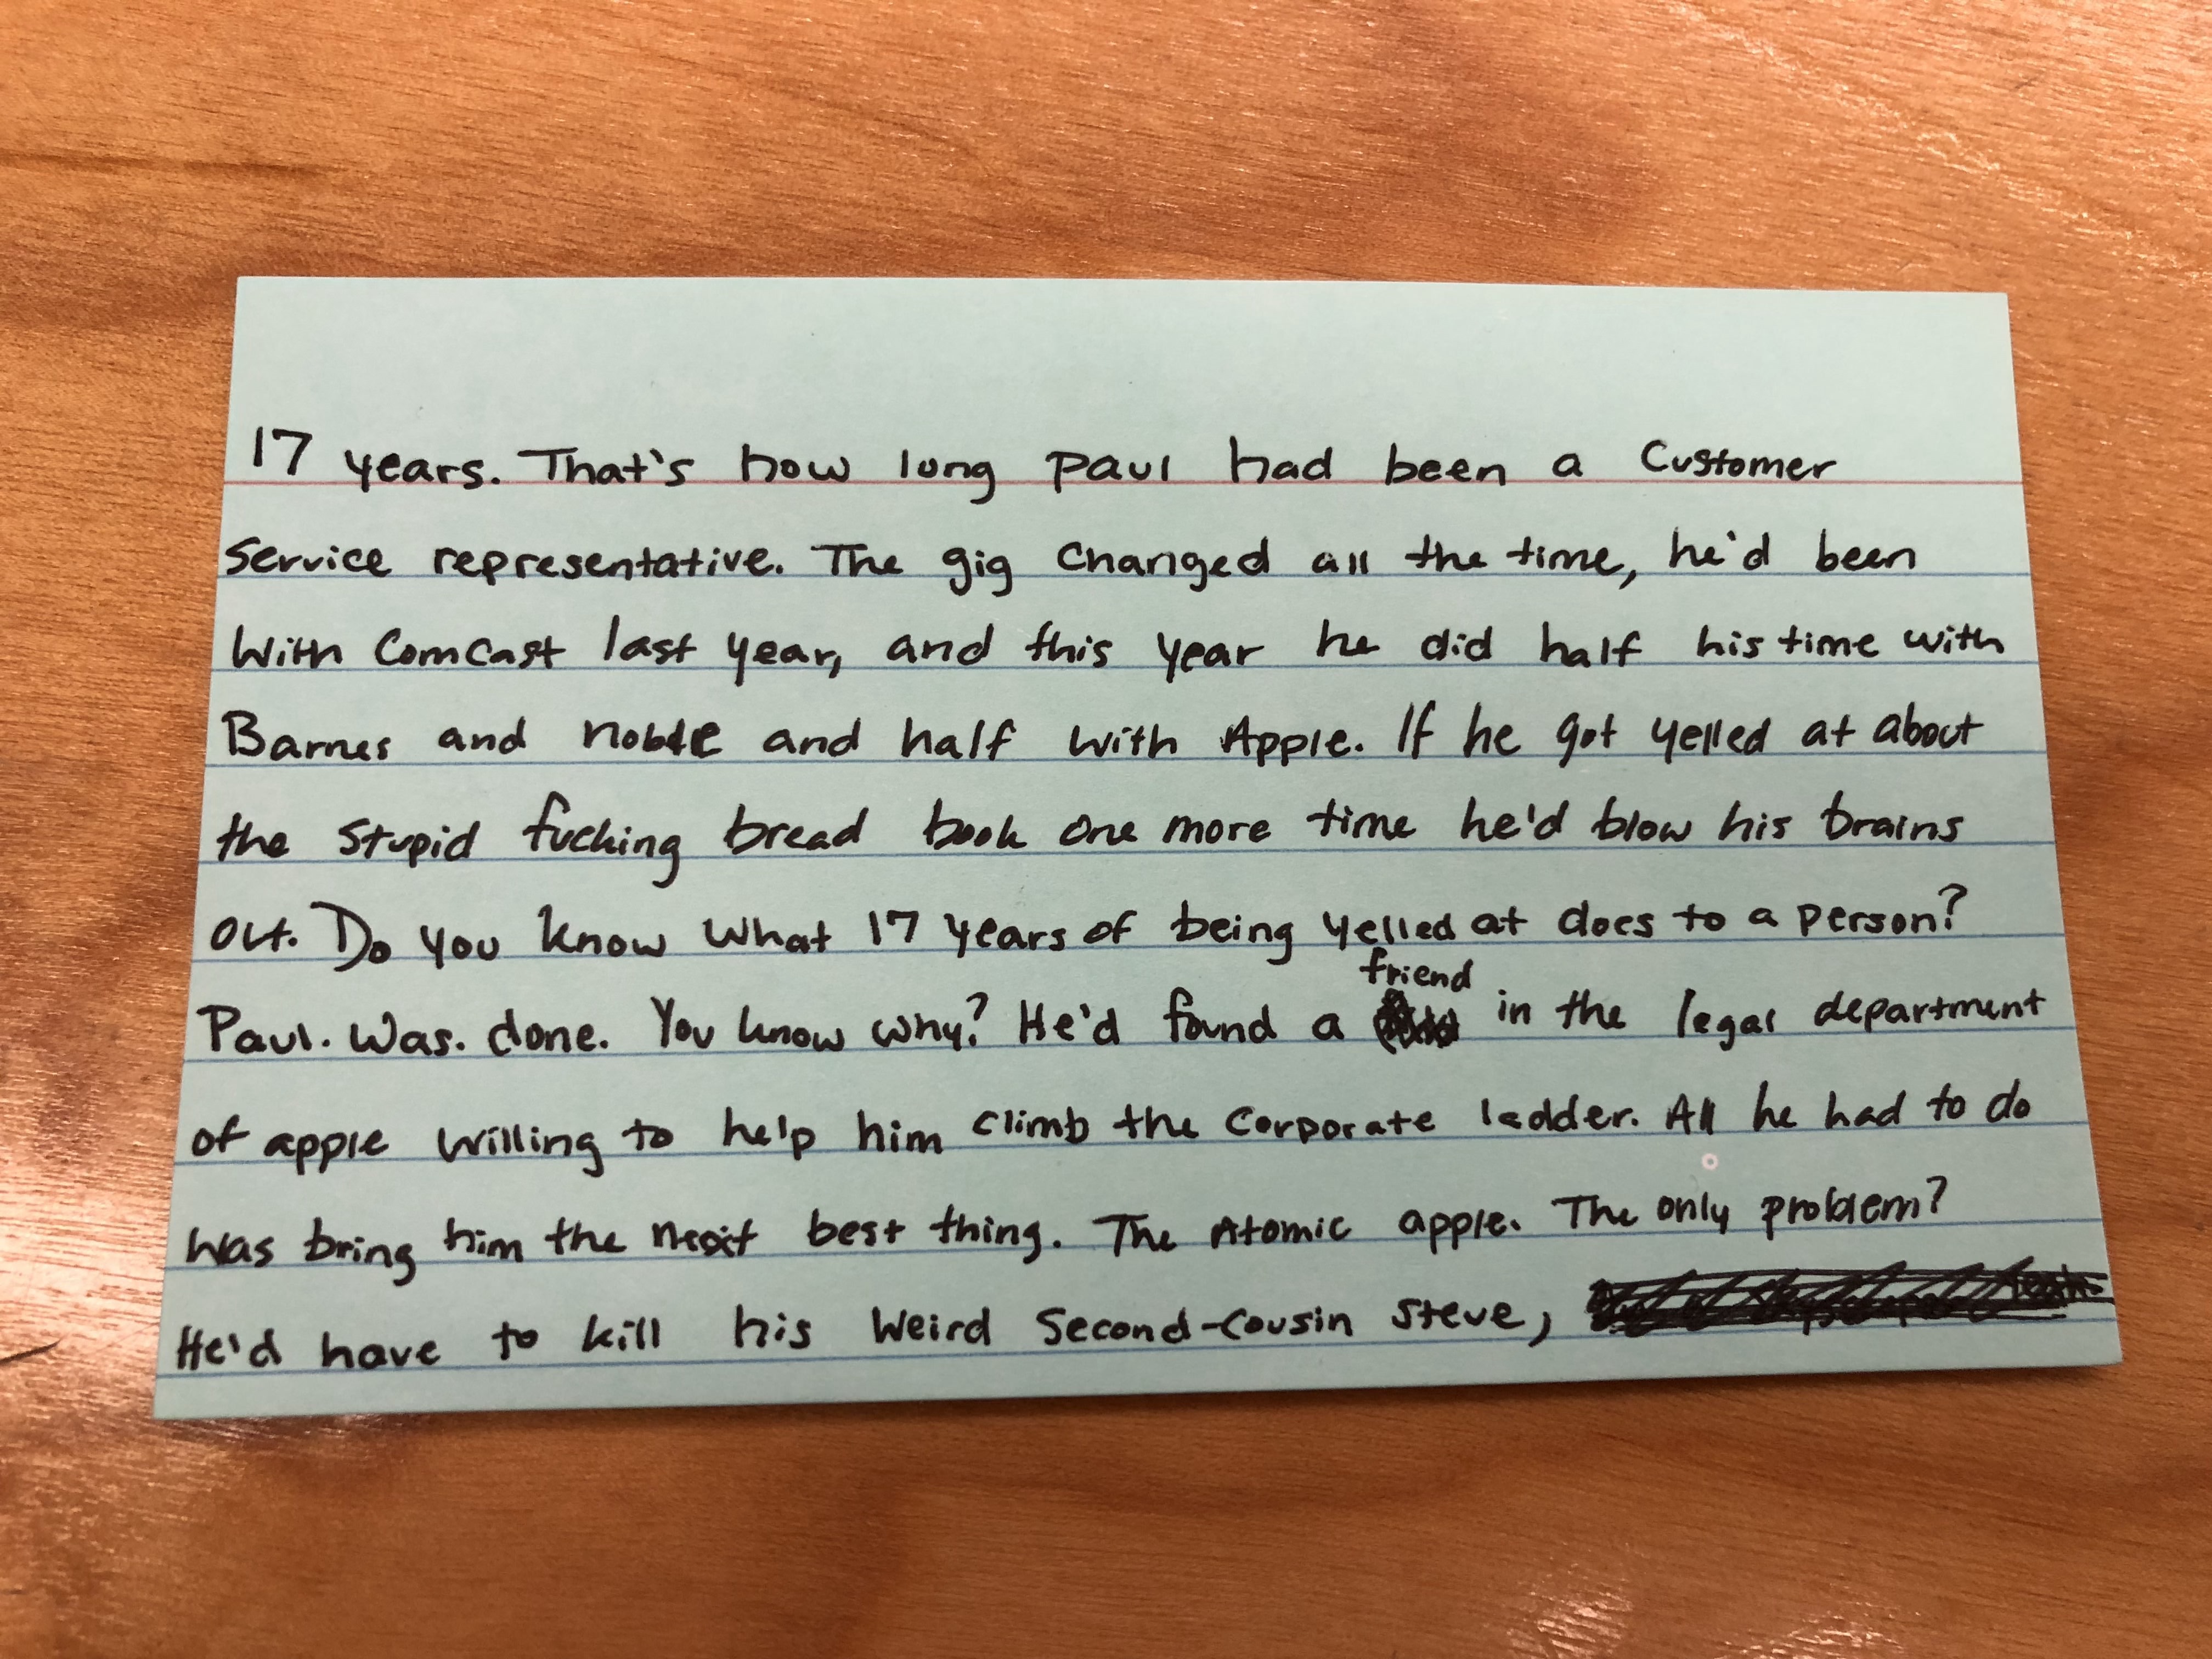 17 years. That's how long Paul had been a Customer
Service representative. The gig changed all the time, he'd been
With Comcast last year, and this year he did half his time with
Barnes and noble and half with Apple. If he got yelled at about
the stupid fucking bread book one more time he'd blow his brains
out. Do you know what 17 years of being yelled at does to a person?
friend
Paul. Was. done. You know why? He'd found a in the legal department
of apple willing to help him climb the corporate ladder. All he had to do
was bring him the next best thing. The Atomic apple. The only problem?
He'd have to kill his weird Second-Cousin Steve,